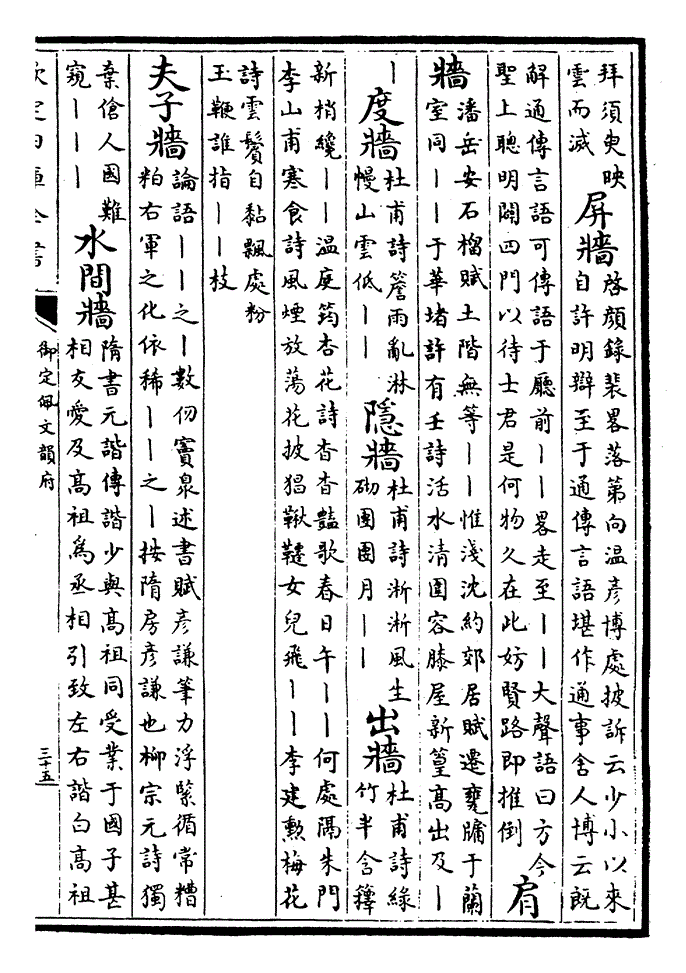 拜須臾映
雲而滅
屏牆
啓顔錄裴畧落第向温彦博處披訴云少小以來
自許明辯至于通傳言語堪作通事舍人博云旣
解通傳言語可傳語于廳前丨丨畧走至丨丨大聲語曰方今
聖上聰明闢四門以待士君是何物久在此妨賢路即推倒
肩
牆
潘岳安石榴賦土階無等丨丨惟淺沈約郊居賦遷甕牖于蘭
室同丨丨于華堵許有壬詩活水清圍容膝屋新篁高出及丨
丨
度牆
杜甫詩簷雨亂淋
慢山雲低丨丨
隱牆
杜甫詩淅淅風生
砌團團月丨丨
出牆
杜甫詩綠
竹半含籜
新梢纔丨丨温庭筠杏花詩杳杳豔歌春日午丨丨何處隔朱門
李山甫寒食詩風煙放蕩花披猖鞦韆女兒飛丨丨李建勲梅花
詩雲鬢自黏飄處粉
玉鞭誰指丨丨枝
夫子牆
論語丨丨之丨數仞竇泉述書賦彦謙筆力浮緊循常糟
粕右軍之化依稀丨丨之丨按隋房彦謙也柳宗元詩獨
棄傖人國難
窺丨丨丨
水間牆
隋書元諧傳諧少與髙祖同受業于國子甚
相友愛及髙祖為丞相引致左右諧白髙祖
欽定四庫全書
御定佩文韻府
三十五